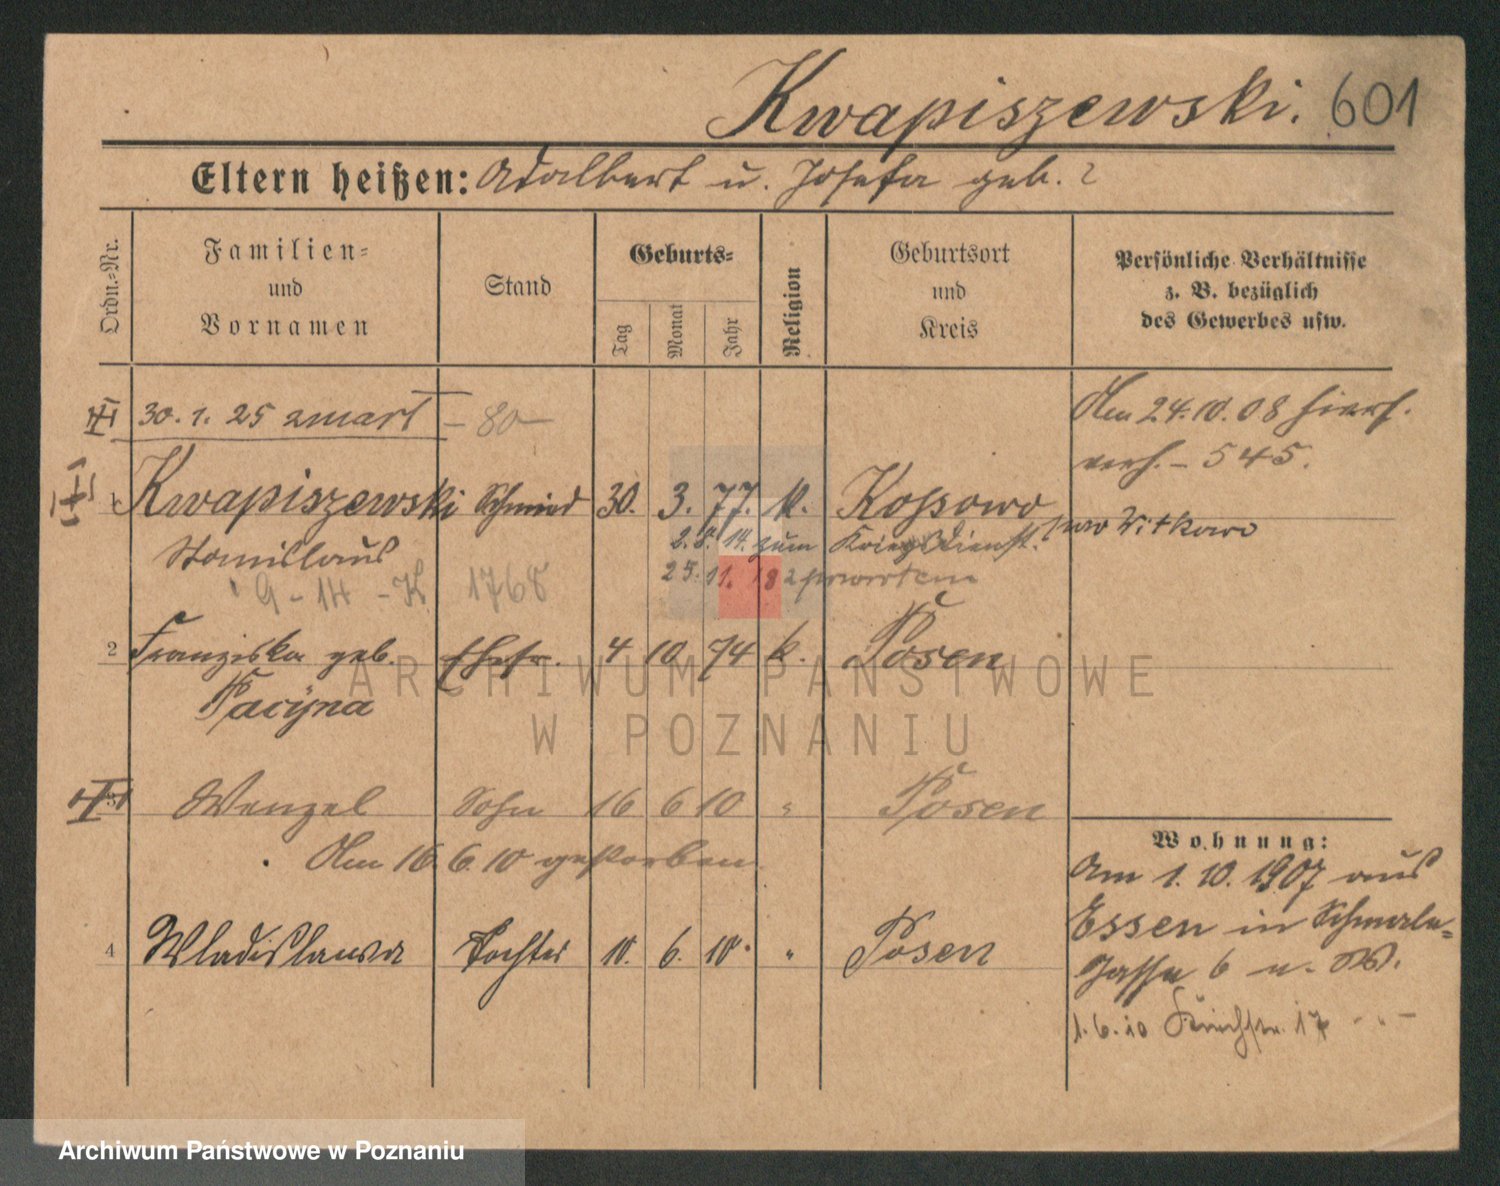 Kwapiszewski. 601
Eltern heißen: Adalbert u. Josefa geb. ?
Ordn.-Nr.
Familien-
und
Vornamen
Stand
Geburts-
Tag
Monat
Jahr
Religion
Geburtsort
und
Kreis
Persönliche Verhältnisse
z. B. bezüglich
des Gewerbes usw.
30. 1. 25 zmarł - 80 -
Am 24.10.08 hiers.
verh. - 545.
1 Kwapiszewski Schmied 30. 3. 77. k. Kossowo
Stanislaus
Witkowo
2. 8. 14. zum Kriegsdienst.
25. 11. 18
9 - 14 - K 1768
2 Franziska geb. Ehefr. 4 10 74 k. Posen
Pacÿna
ARCHIWUM PAŃSTWOWE
W POZNANIU
3 Wenzel Sohn 16 6 10 " Posen
Am 16. 6. 10 gestorben
4 Wladislawa Tochter 10. 6. 10. " Posen
Wohnung:
Am 1. 10. 1907 aus
Essen in Schmale-
gasse 6 u. W.
1. 6. 10
Archiwum Państwowe w Poznaniu